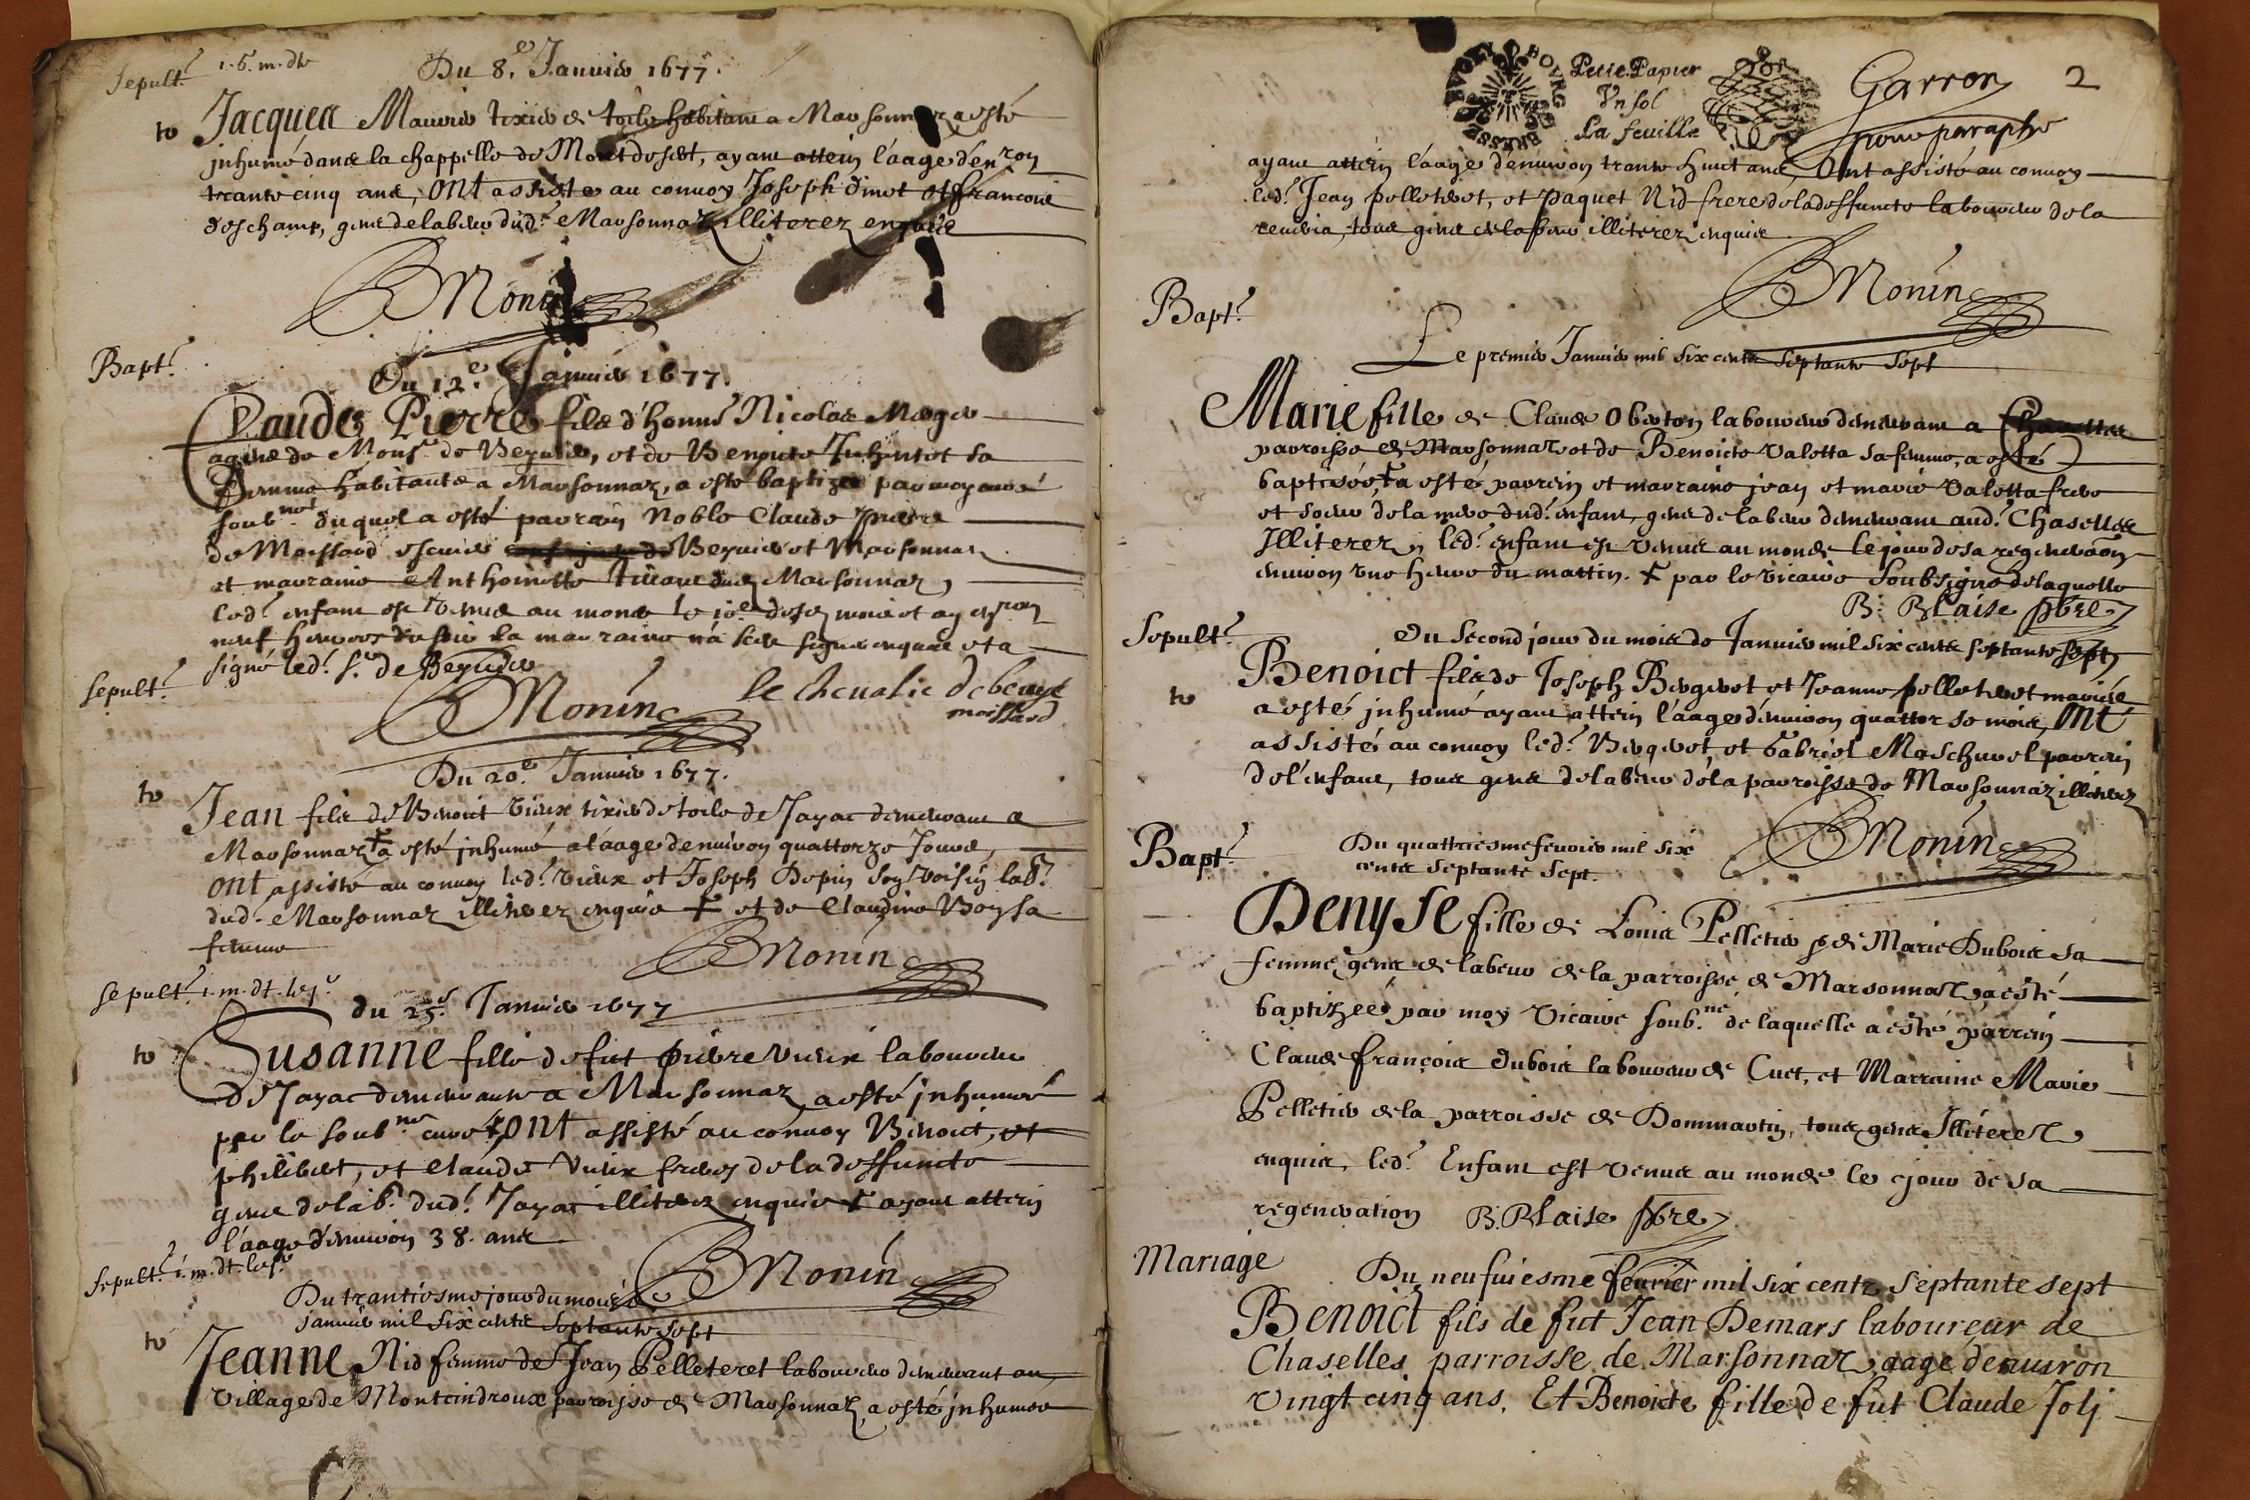 Sepult.e 1. 6. m. dt
Du 8.e Januier 1677.
to
Jacques Maurier tixier de toile habitant a Marsonnaz a esté
inhumé dans la chappelle de Montdesert, ayant attein l'aage d'enron
trante cinq ans, ont assistés au conuoy Joseph et francois
deschamp, gens de labeur dud.t Marsonnaz illiterez enquis
BMonin
Bapt.e
Du 12.e Januier 1677.
Claude Pierre fils d'honn.e Nicolas
de Mons.r de Beyuiers, et de Benoicte sa
femme habitants a Marsonnaz, a esté baptizé par moy curé
soub.né duquel a esté parrain Noble Claude
de Moissard escuier Beyuier et Marsonnaz
et marraine Anthoinette Marsonnaz,
led.t enfant est venus au monde le
neuf heures du soir la marraine n'a sceu signer enquise et a
signé led.t s.r de Beyuier
BMonin
le cheualie de beuye
moissard
Sepult.e
Du 20.e Januier 1677.
to
Jean fils de Benoit vieux tixier de toile de Jayac demeurant a
Marsonnaz + a esté inhumé a l'aage d'enuiron quattorze Jours,
ont assisté au conuoy led.t vieux et Joseph Depin son voisin lab.r
dud.t Marsonnaz illiterez enquis + et de Claudine Boy sa
femme
BMonin
Sepult.e 1. m. dt. les.e
du 25.e Januier 1677
to
Susanne fille de fut pierre vieux laboureur
de Jayac demeurante a Marsonnaz a esté inhumée
par le soub.né curé + ont assisté au conuoy Benoict, et
philibert, et Claude vieux freres de la deffuncte
gens de lab.r dud.t Jayac illiterez enquis + ayant attein
l'aage d'enuiron 38. ans
BMonin
Sepult.e 1. m. dt. les.e
Du trantiesme jour du mois de
Januier mil six cents septante sept
to
Jeanne Nid femme de Jean Pelleteret laboureur demeurant au
village de Monteindroux parroisse de Marsonnaz, a esté inhumee
Petit Papier
Vn sol
La feuille
Garron
2
ayant attein l'aage d'enuiron trante huict ans, Ont assisté au conuoy
led.t Jean pelleteret, et Paquet Nid frere de la deffuncte laboureur de la
tous gens de labeur illiterez enquis
BMonin
Bapt.e
Le premier Januier mil six cents septante sept
Marie fille de Claude Oberton laboureur demeurant a Chaselles
parroisse de Marsonnaz et de Benoicte Valotta sa femme, a esté
baptisée, + a esté parrain et marraine jean et marie Valotta frere
et soeur de la mere dud.t enfant, gens de labeur demeurant aud.t Chaselles
Illiterez, led.t enfant est venus au monde le jour de sa regeneraõn
enuiron vne heure du mattin. + par le vicaire soubsigné de laquelle
B. Blaise pbre
Sepult.e
Du second jour du mois de Januier mil six cents septante sept
to
Benoict fils de Joseph Bergeret et Jeanne pelleteret mariés
a esté inhumé ayant attein l'aage d'enuiron quattorse mois, Ont
assistés au conuoy led.t Bergeret, et Gabriel Maschurel parrain
de l'enfant, tous gens de labeur de la parroisse de Marsonnaz illiterez
BMonin
Bapt.e
Du quattriesme feurier mil six
cents septante sept.
Denyse fille de Louis Pelletier & de Marie Dubois sa
femme gens de labeur de la parroisse de Marsonnaz, a esté
baptizeé par moy vicaire soub.né de laquelle a esté parrein
Claude françois dubois laboureur de Cuet, et Marraine Marie
Pelletier de la parroisse de Dommartin, tous gens Illiterez
enquis, led.t Enfant est venus au monde le jour de sa
regeneration
B. Blaise pbre
Mariage
Du neufuiesme feurier mil six cents septante sept
Benoict fils de fut Jean Demars laboureur de
Chaselles parroisse de Marsonnaz, aagé d'enuiron
vingt cinq ans, Et Benoicte fille de fut Claude Joli